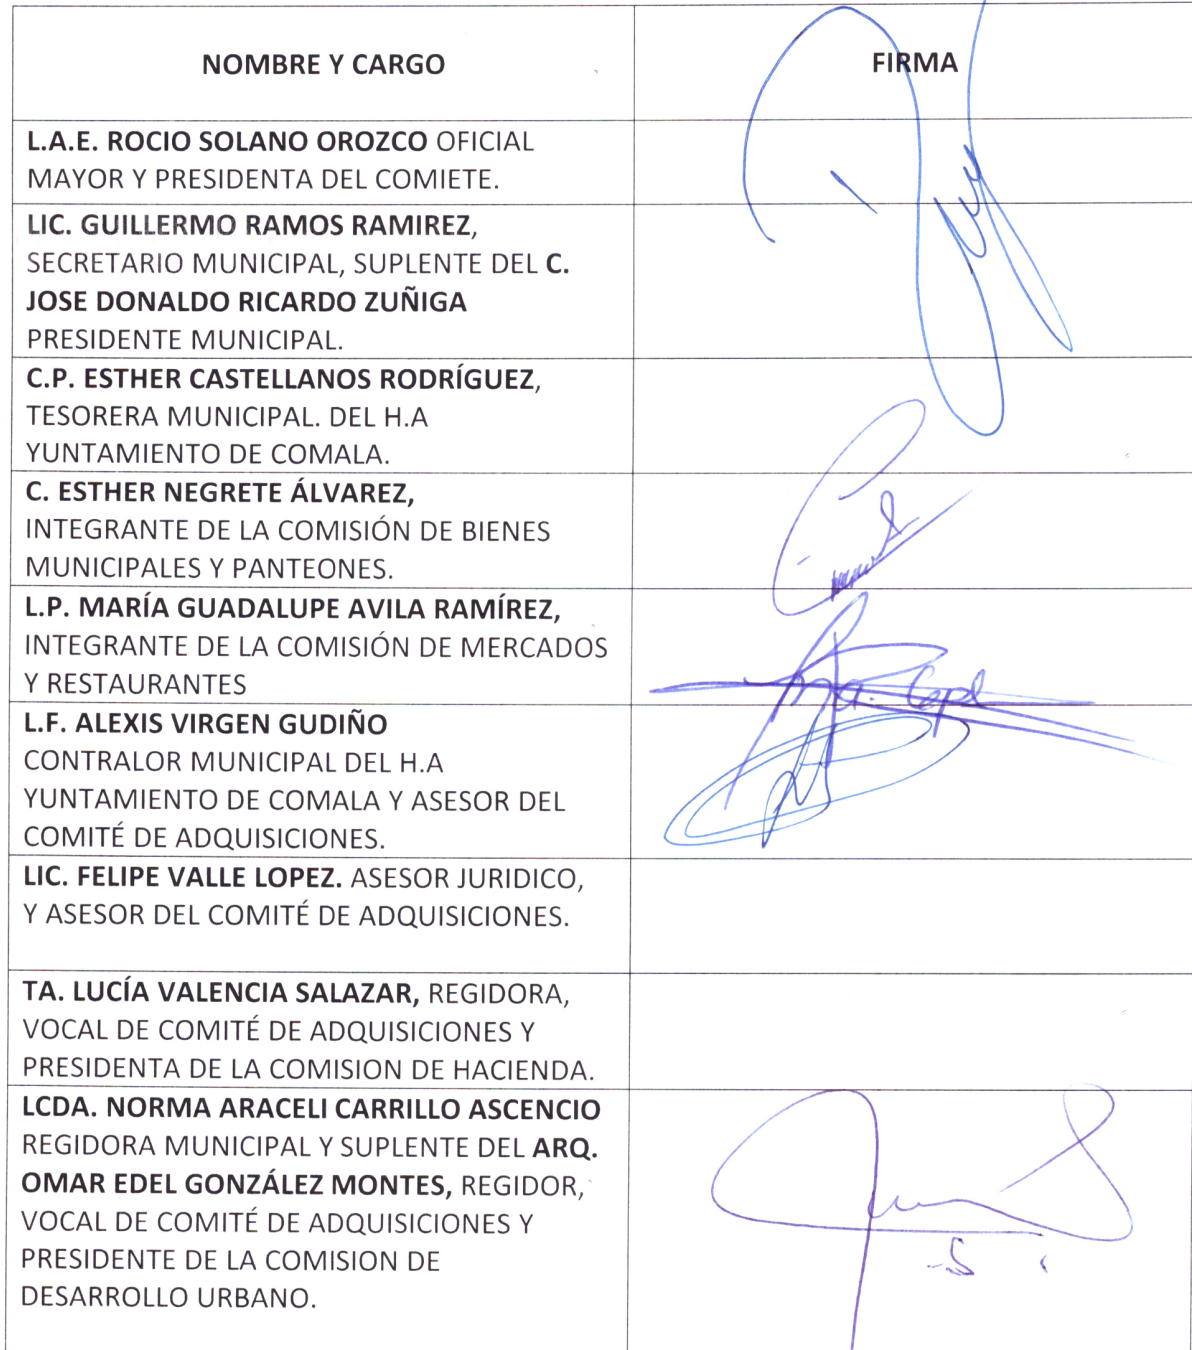 NOMBRE Y CARGO
FIRMA
L.A.E. ROCIO SOLANO OROZCO OFICIAL
MAYOR Y PRESIDENTA DEL COMIETE.
LIC. GUILLERMO RAMOS RAMIREZ,
SECRETARIO MUNICIPAL, SUPLENTE DEL C.
JOSE DONALDO RICARDO ZUÑIGA
PRESIDENTE MUNICIPAL.
C.P. ESTHER CASTELLANOS RODRÍGUEZ,
TESORERA MUNICIPAL. DEL H.A
YUNTAMIENTO DE COMALA.
C. ESTHER NEGRETE ÁLVAREZ,
INTEGRANTE DE LA COMISIÓN DE BIENES
MUNICIPALES Y PANTEONES.
L.P. MARÍA GUADALUPE AVILA RAMÍREZ,
INTEGRANTE DE LA COMISIÓN DE MERCADOS
Y RESTAURANTES
L.F. ALEXIS VIRGEN GUDIÑO
CONTRALOR MUNICIPAL DEL H.A
YUNTAMIENTO DE COMALA Y ASESOR DEL
COMITÉ DE ADQUISICIONES.
LIC. FELIPE VALLE LOPEZ. ASESOR JURIDICO,
Y ASESOR DEL COMITÉ DE ADQUISICIONES.
TA. LUCÍA VALENCIA SALAZAR, REGIDORA,
VOCAL DE COMITÉ DE ADQUISICIONES Y
PRESIDENTA DE LA COMISION DE HACIENDA.
LCDA. NORMA ARACELI CARRILLO ASCENCIO
REGIDORA MUNICIPAL Y SUPLENTE DEL ARQ.
OMAR EDEL GONZÁLEZ MONTES, REGIDOR,
VOCAL DE COMITÉ DE ADQUISICIONES Y
PRESIDENTE DE LA COMISION DE
DESARROLLO URBANO.